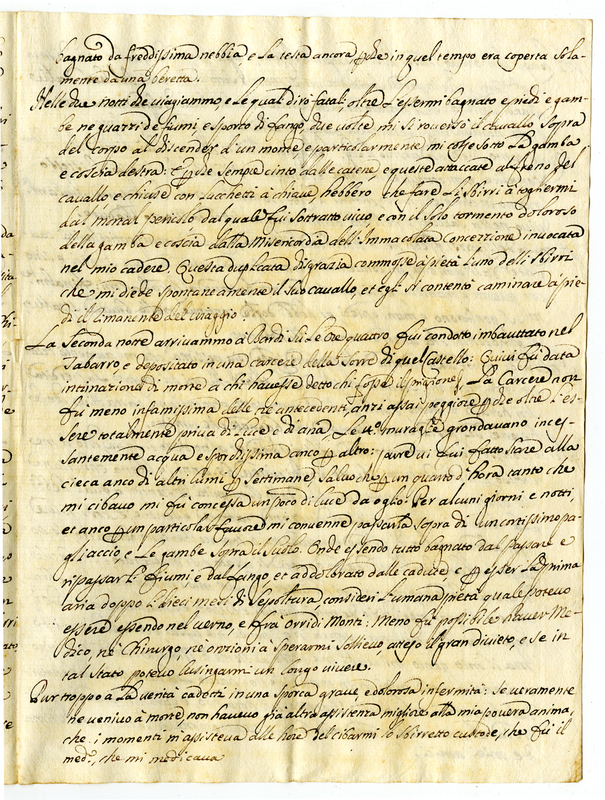 bagnato da freddissima nebbia e la testa ancora pche in quel tempo era coperta sola-
mente da una beretta.
Nelle due notti che viagiammo, e le quali dirò fatali, oltre l'essermi bagnato e piedi e gam-
be ne guazzi de fiumi, e sporco di fango, due volte mi si roversò il cavallo sopra
del corpo al discender d'un monte e particolarmente mi colse sotto la gamba
e coscia destra: E pche sempre cinto dalle catene, e queste attaccate al freno del
cavallo e chiuse con lucchetti à chiave, hebbero che fare li sbirri à togliermi
dal minal pericolo dal quale fui sottratto vivo e con il solo tormento doloroso
della gamba e coscia dalla Misericordia dell'Immacolata Concezzione invocata
nel mio cadere. Questa duplicata disgrazia commosse à pietà l'uno delli sbirri
che mi diede spontaneamente il suo cavallo, et egli si contentò caminare à pie-
di il rimanente del viaggio
La seconda notte arrivammo à Bardi su le ore quattro, fui condotto imbauttato nel
Tabarro e depositato in una carcere della Torre di quel Castello: Quivi fù data
intimazione di morte à chi havesse detto chi fosse il prigione. La Carcere non
fù meno infamissima delle tre antecedenti, anzi assai peggiore pche oltre l'es-
sere totalmente priva di luce e di aria, le 4° muraglie grondavano inces-
santemente acqua e sporchissima anco p altro: save vi fui fatto stare alla
cieca anco di altri lumi p Settimane salvo che p un quarto d'hora tanto che
mi cibavo mi fù concessa un poco di luce da oglio. Per alcuni giorni e notti
et anco p un particolar favore mi convenne passarla sopra di un cortissimo pa-
gliaccio, e le gambe sopra il suolo. Onde essendo tutto bagnato dal passare e
ripassar li fiumi e dal fango, et addolorato dalle cadute e p esser la prima
aria doppo li dieci mesi di sepoltura, consideri l'umana pietà quale potevo
essere essendo nel verno, e frà orridi Monti: Meno fù possibile haver Me-
dico, nè Chirurgo, nè onzioni à sperarmi sollievo, atteso il gran divieto, e se in
tal stato potevo lusingarmi un longo vivere.
Pur troppo à la verità cadetti in una sporca grave, e dolorosa infermità: se veramente
ne venivo à morte, non havevo già altra assistenza migliore alla mia povera anima,
che i momenti m'assisteva alle hore del cibarmi lo sbirretto custode, che fù il
med°, che mi medicava